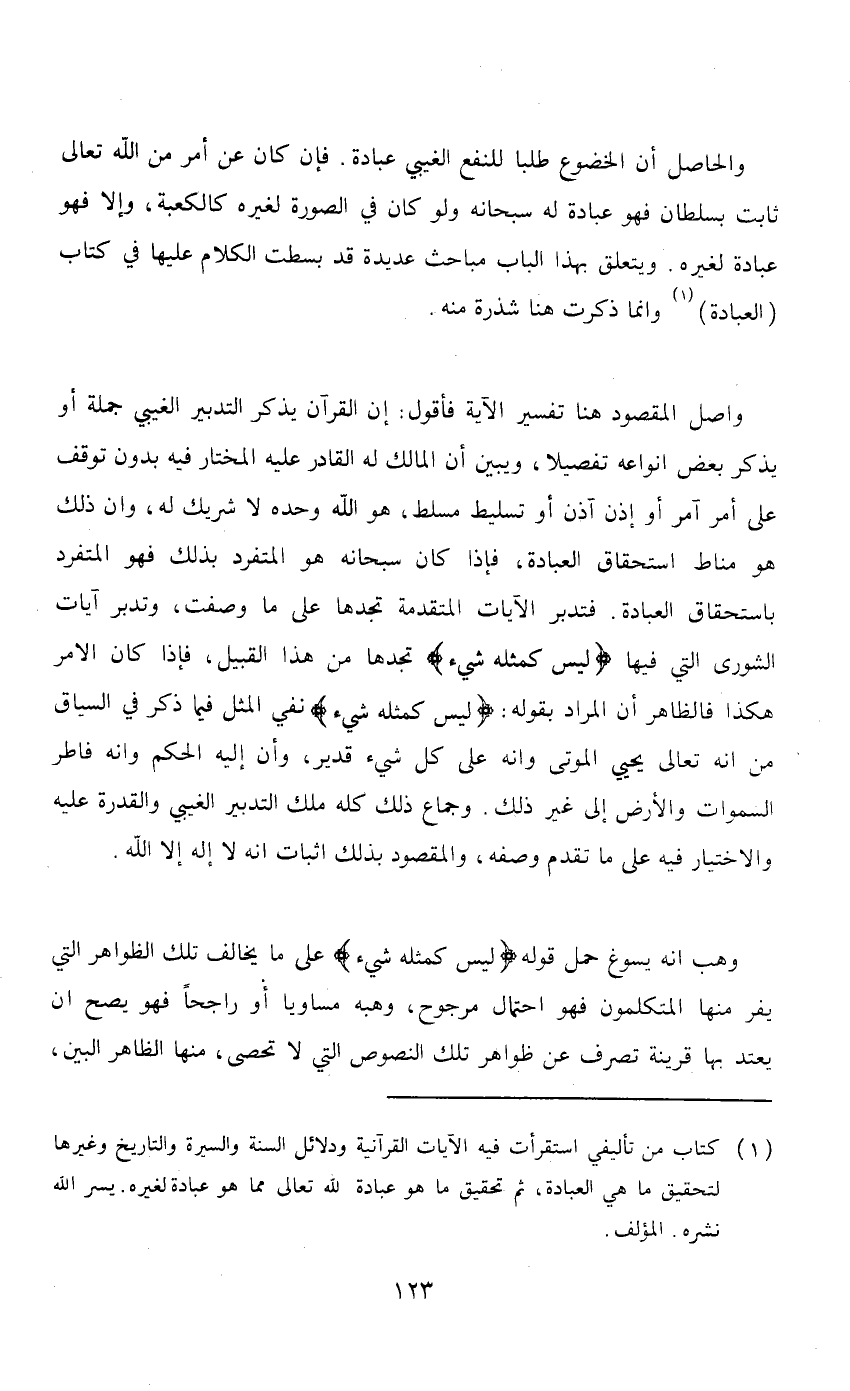 والحاصل أن الخضوع طلبا للنفع الغيبي عبادة. فإن كان عن أمر من الله تعالى
ثابت بسلطان فهو عبادة له سبحانه ولو كان في الصورة لغيره كالكعبة، وإلا فهو
عبادة لغيره. ويتعلق بهذا الباب مباحث عديدة قد بسطت الكلام عليها في كتاب
(العبادة) (١) وانما ذكرت هنا شذرة منه.
واصل المقصود هنا تفسير الآية فأقول: إن القرآن يذكر التدبير الغيبي جملة أو
يذكر بعض انواعه تفصيلا، ويبين أن المالك له القادر عليه المختار فيه بدون توقف
على أمر آمر أو إذن آذن أو تسليط مسلط، هو الله وحده لا شريك له، وان ذلك
هو مناط استحقاق العبادة، فإذا كان سبحانه هو المتفرد بذلك فهو المتفرد
باستحقاق العبادة. فتدبر الآيات المتقدمة تجدها على ما وصفت، وتدبر آيات
الشورى التي فيها ﴿ليس كمثله شيء﴾ تجدها من هذا القبيل، فإذا كان الامر
هكذا فالظاهر أن المراد بقوله: ﴿ليس كمثله شيء﴾ نفي المثل فيما ذكر في السياق
من انه تعالى يحيي الموتى وانه على كل شيء قدير، وأن إليه الحكم وانه فاطر
السموات والأرض إلى غير ذلك. وجماع ذلك كله ملك التدبير الغيبي والقدرة عليه
والاختيار فيه على ما تقدم وصفه، والمقصود بذلك اثبات انه لا إله إلا الله.
وهب انه يسوغ حمل قوله ﴿ليس كمثله شيء﴾ على ما يخالف تلك الظواهر التي
يفر منها المتكلمون فهو احتمال مرجوح، وهبه مساويا أو راجحاً فهو يصح ان
يعتد بها قرينة تصرف عن ظواهر تلك النصوص التي لا تحصى، منها الظاهر البين،
(١) كتاب من تأليفي استقرأت فيه الآيات القرآنية ودلائل السنة والسيرة والتاريخ وغيرها
لتحقيق ما هي العبادة، ثم تحقيق ما هو عبادة لله تعالى مما هو عبادة لغيره. يسر الله
نشره. المؤلف.
١٢٣